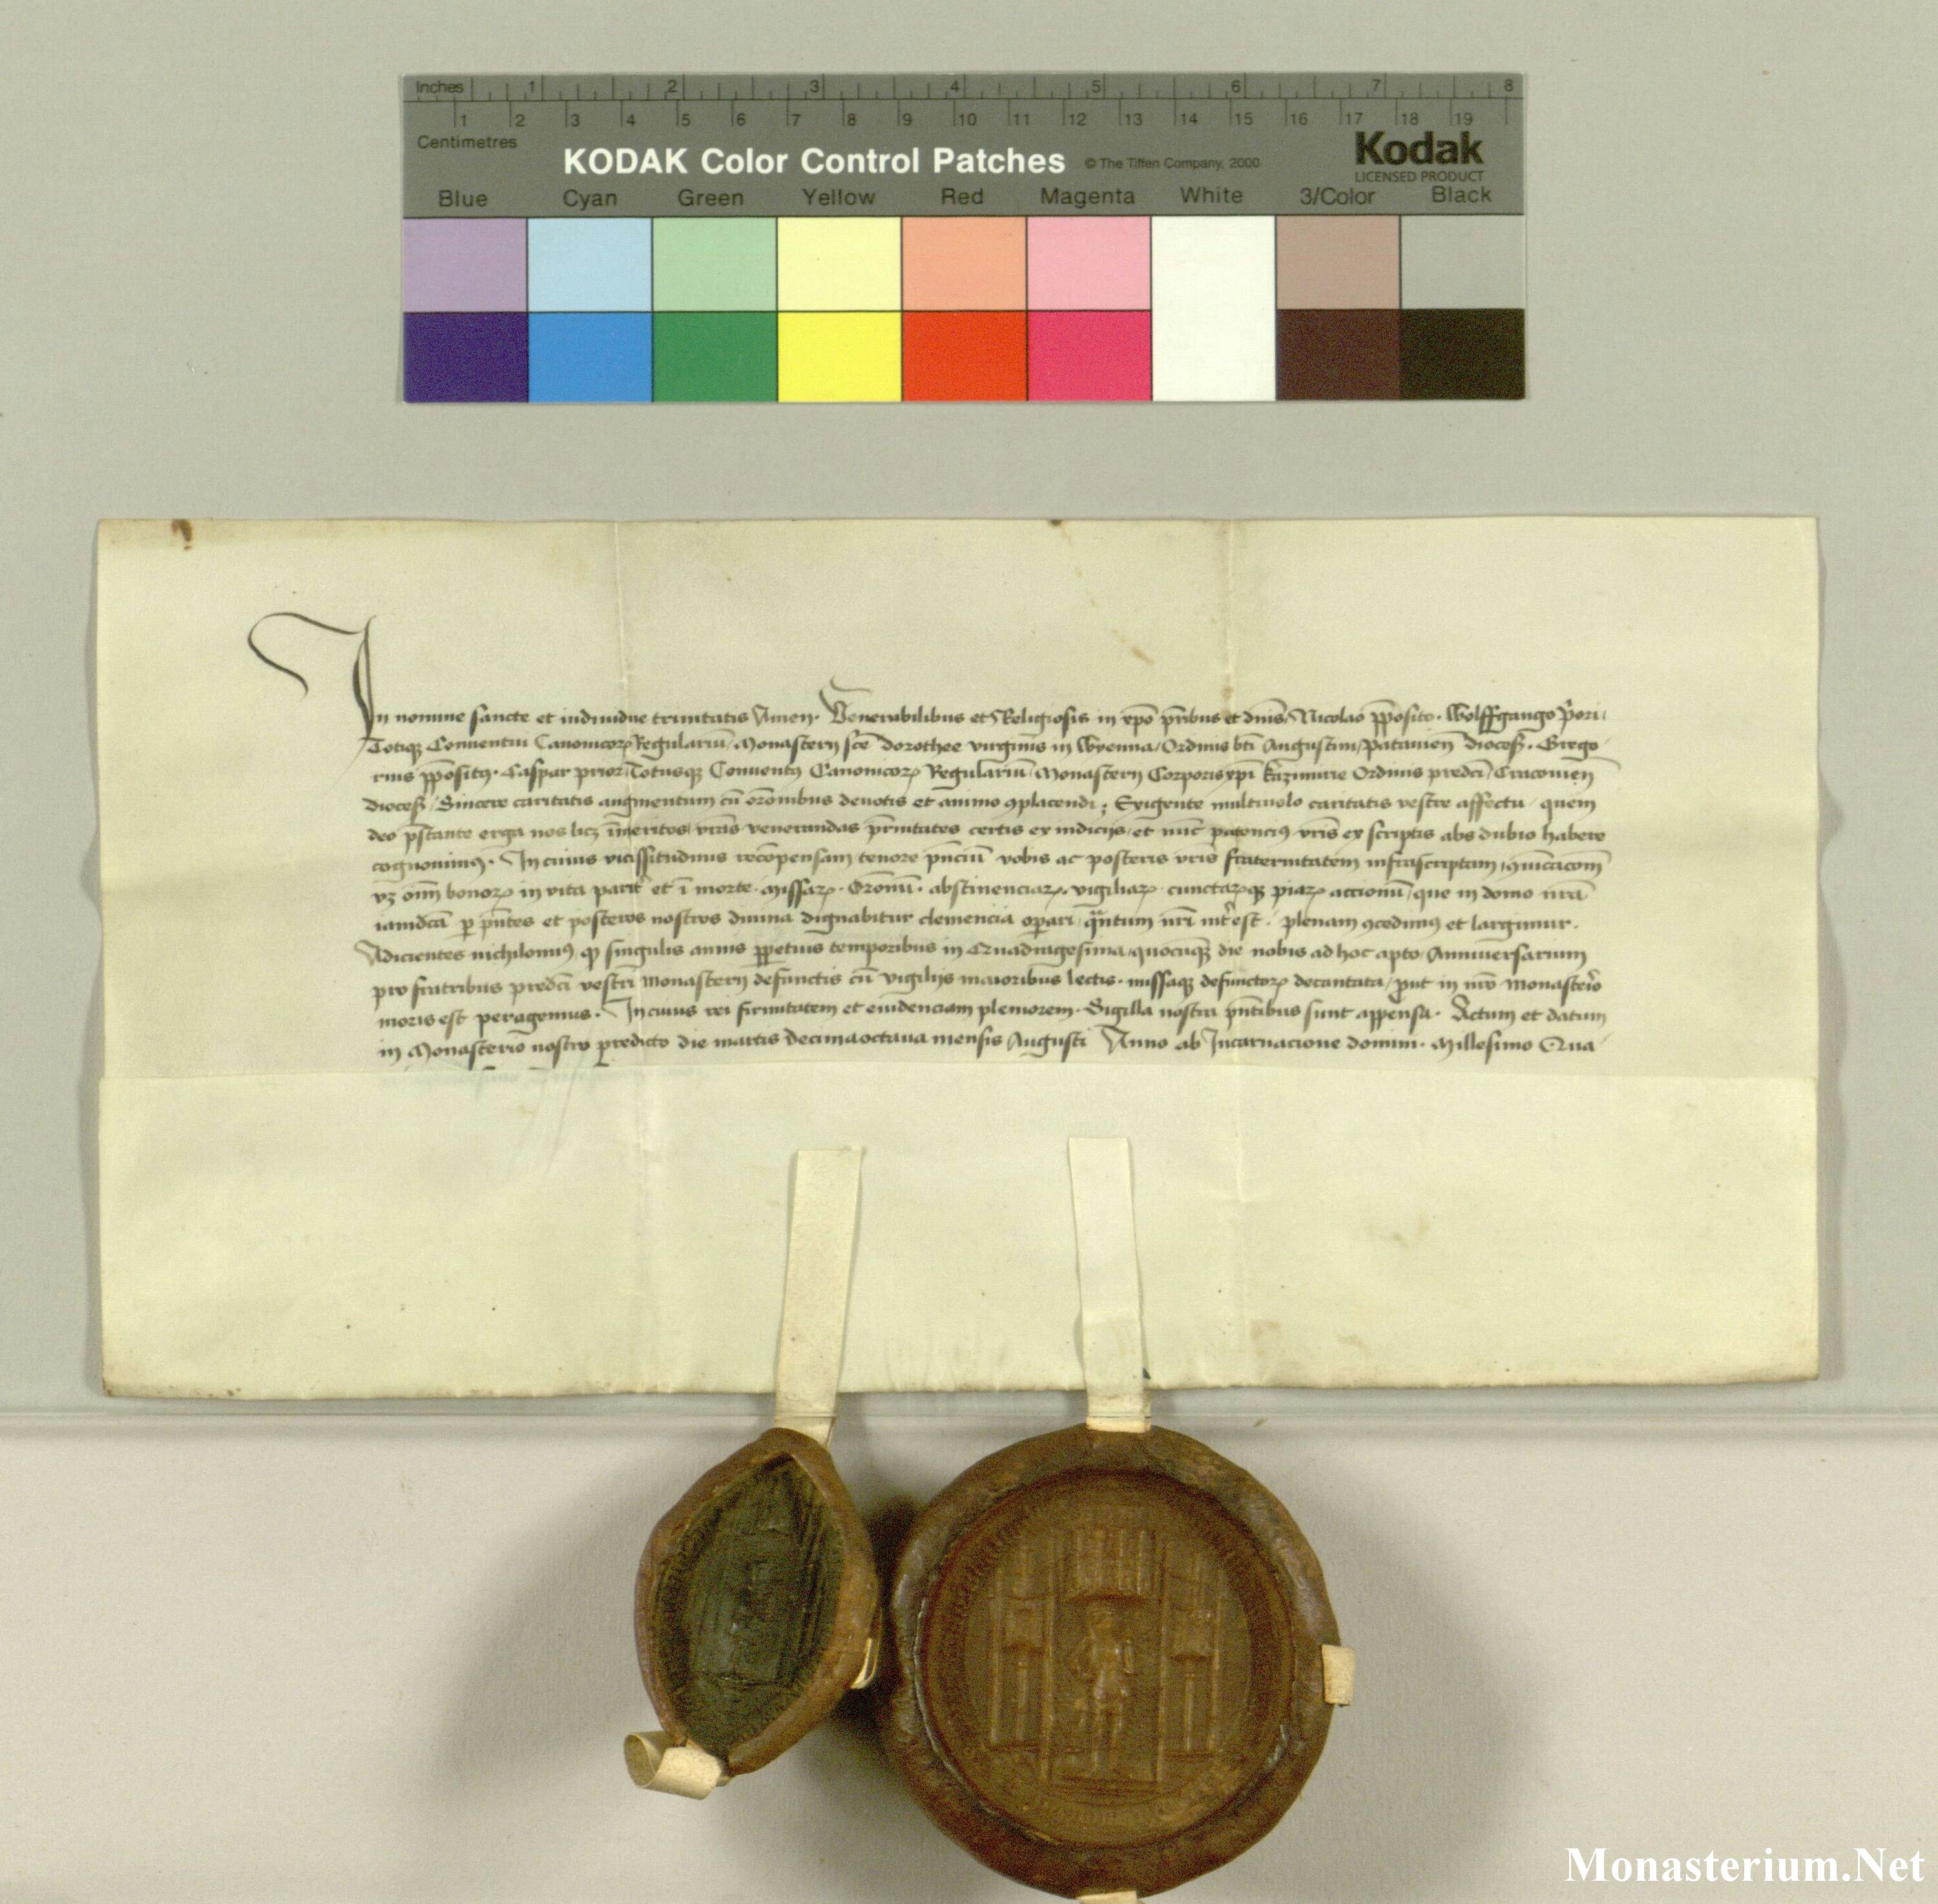 Inches 1 2 3 4 5 6 7 8
1 2 3 4 5 6 7 8 9 10 11 12 13 14 15 16 17 18 19
Centimetres
KODAK Color Control Patches © The Tiffen Company, 2000 Kodak
LICENSED PRODUCT
Blue Cyan Green Yellow Red Magenta White 3/Color Black
In nomine sancte et indiuidue trinitatis Amen. Venerabilibus et Religiosis in xpo pribus et dnis Nicolao pposito. Wolffgango priori
Totiq Conuentui Canonicorꝝ Regulariū Monasterij sce dorothee virginis in Wyenna Ordinis bti Augustini Patauien dioces. Grego
rius ppositꝰ. Caspar prior Totusq Conuentꝰ Canonicorꝝ Regulariū Monasterij Corporis xpi kazimirie Ordinis predci Cracouien
dioces Sincere caritatis augmentum cū oronibus deuotis et animo ꝯplacendi. Exigente multiuolo caritatis vestre affectu quem
deo pstante erga nos licꝫ īmeritos vras venerandas prnitates certis ex indicijs et nūc patenciꝰ vris ex scriptis abs dubio habere
cognouimꝰ. In cuius vicissitudinis recōpensam tenore pnciū vobis ac posteris vris fraternitatem infrascriptam
vꝫ oim bonorꝝ in vita parit et ī morte. missarꝝ. Oronū. abstinenciarꝝ. vigiliarꝝ cunctarꝝqꝫ piarꝝ accionū que in domo nra
iamdca ꝑ pntes et posteros nostros diuina dignabitur clemencia oꝑari qntum nri intest. plenam ꝯcedimꝰ et largimur.
Adicientes nichilominꝰ ꝙ singulis annis ꝑpetuis temporibus in Quadragesima quocūqꝫ die nobis ad hoc apto Anniuersarium
pro fratribus predci vestri monasterij defunctis cū vigilijs maioribus lectis. missaqꝫ defunctorꝝ decantata prout in nro monasterio
moris est peragemus. In cuius rei firmitatem et euidenciam pleniorem. Sigilla nostra pntibus sunt appensa. Actum et datum
in Monasterio nostro predicto die martis decimaoctaua mensis Augusti Anno ab Incarnacione domini. Millesimo Qua
Monasterium.Net